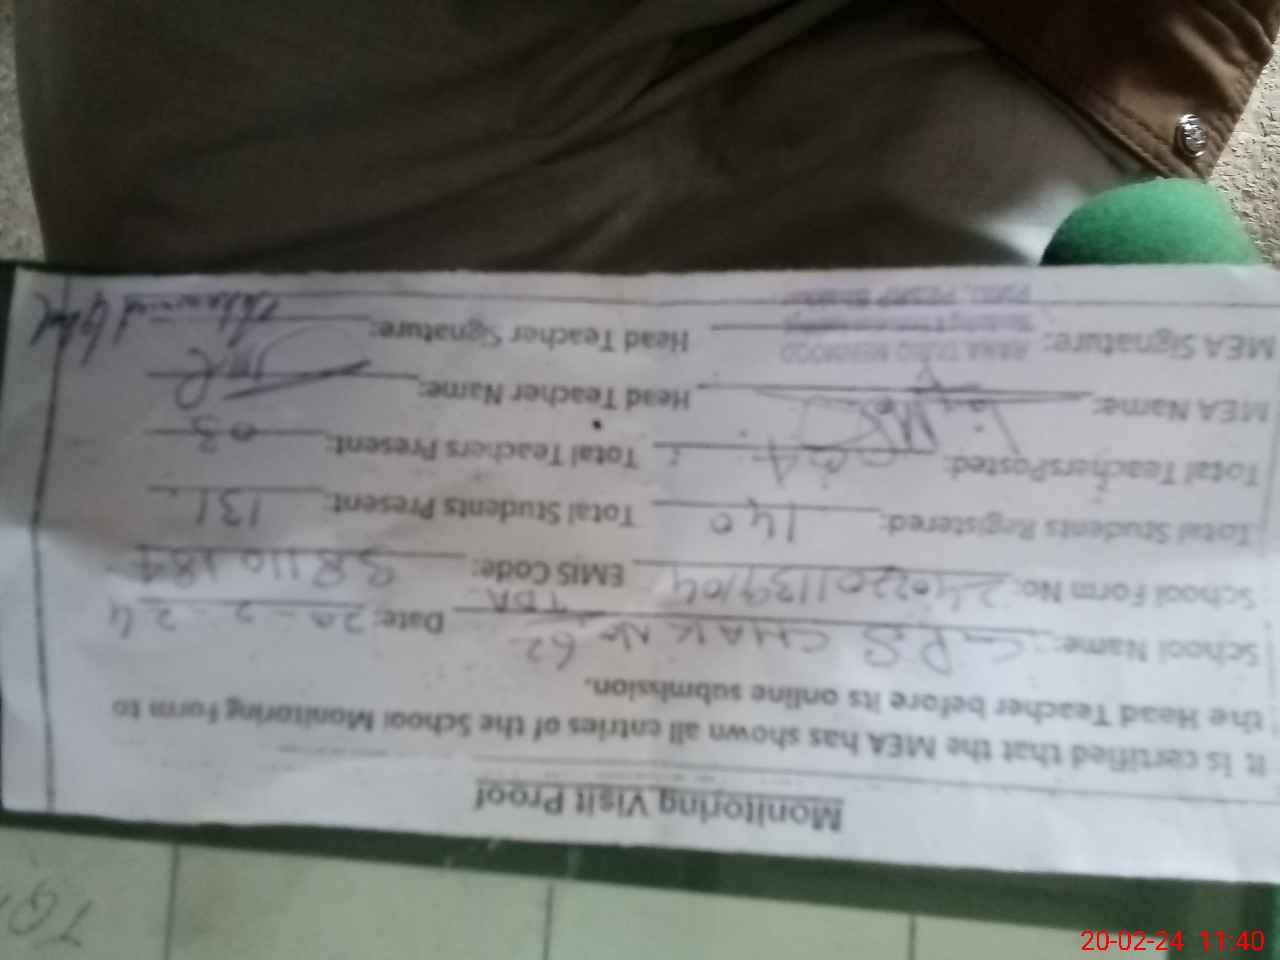 Monitoring Visit Proof
It is certified that the MEA has shown all entries of the School Monitoring Form to
the Head Teacher before its online submission.
School Name: G.P.S CHAK No 62 TDA Date: 20-2-24
School Form No: EMIS Code:
Total Students Registered: 140 Total Students Present: 131
Total TeachersPosted: 04 Total Teachers Present: 03
MEA Name: Head Teacher Name:
MEA Signature: Head Teacher Signature:
RANA TARIQ MEHMOOD
20-02-24 11:40